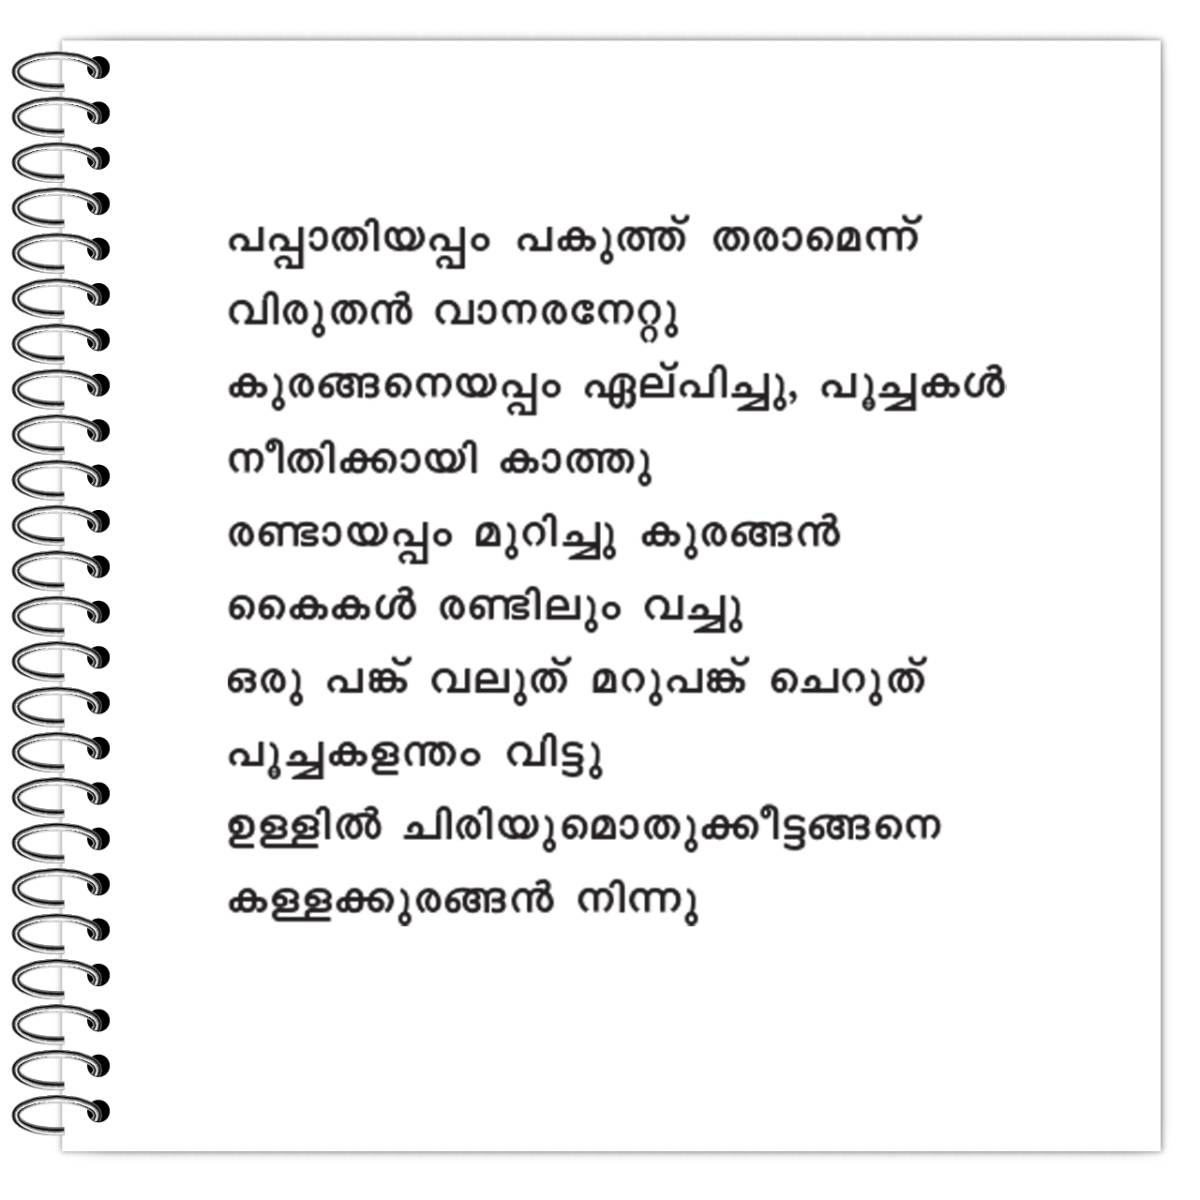 പപ്പാതിയപ്പം പകുത്ത് തരാമെന്ന്
വിരുതൻ വാനരനേറ്റു
കുരങ്ങനെയപ്പം ഏല്പിച്ചു, പൂച്ചകൾ
നീതിക്കായി കാത്തു
രണ്ടായപ്പം മുറിച്ചു കുരങ്ങൻ
കൈകൾ രണ്ടിലും വച്ചു
ഒരു പങ്ക് വലുത് മറുപങ്ക് ചെറുത്
പൂച്ചകളന്തം വിട്ടു
ഉള്ളിൽ ചിരിയുമൊതുക്കീട്ടങ്ങനെ
കള്ളക്കുരങ്ങൻ നിന്നു